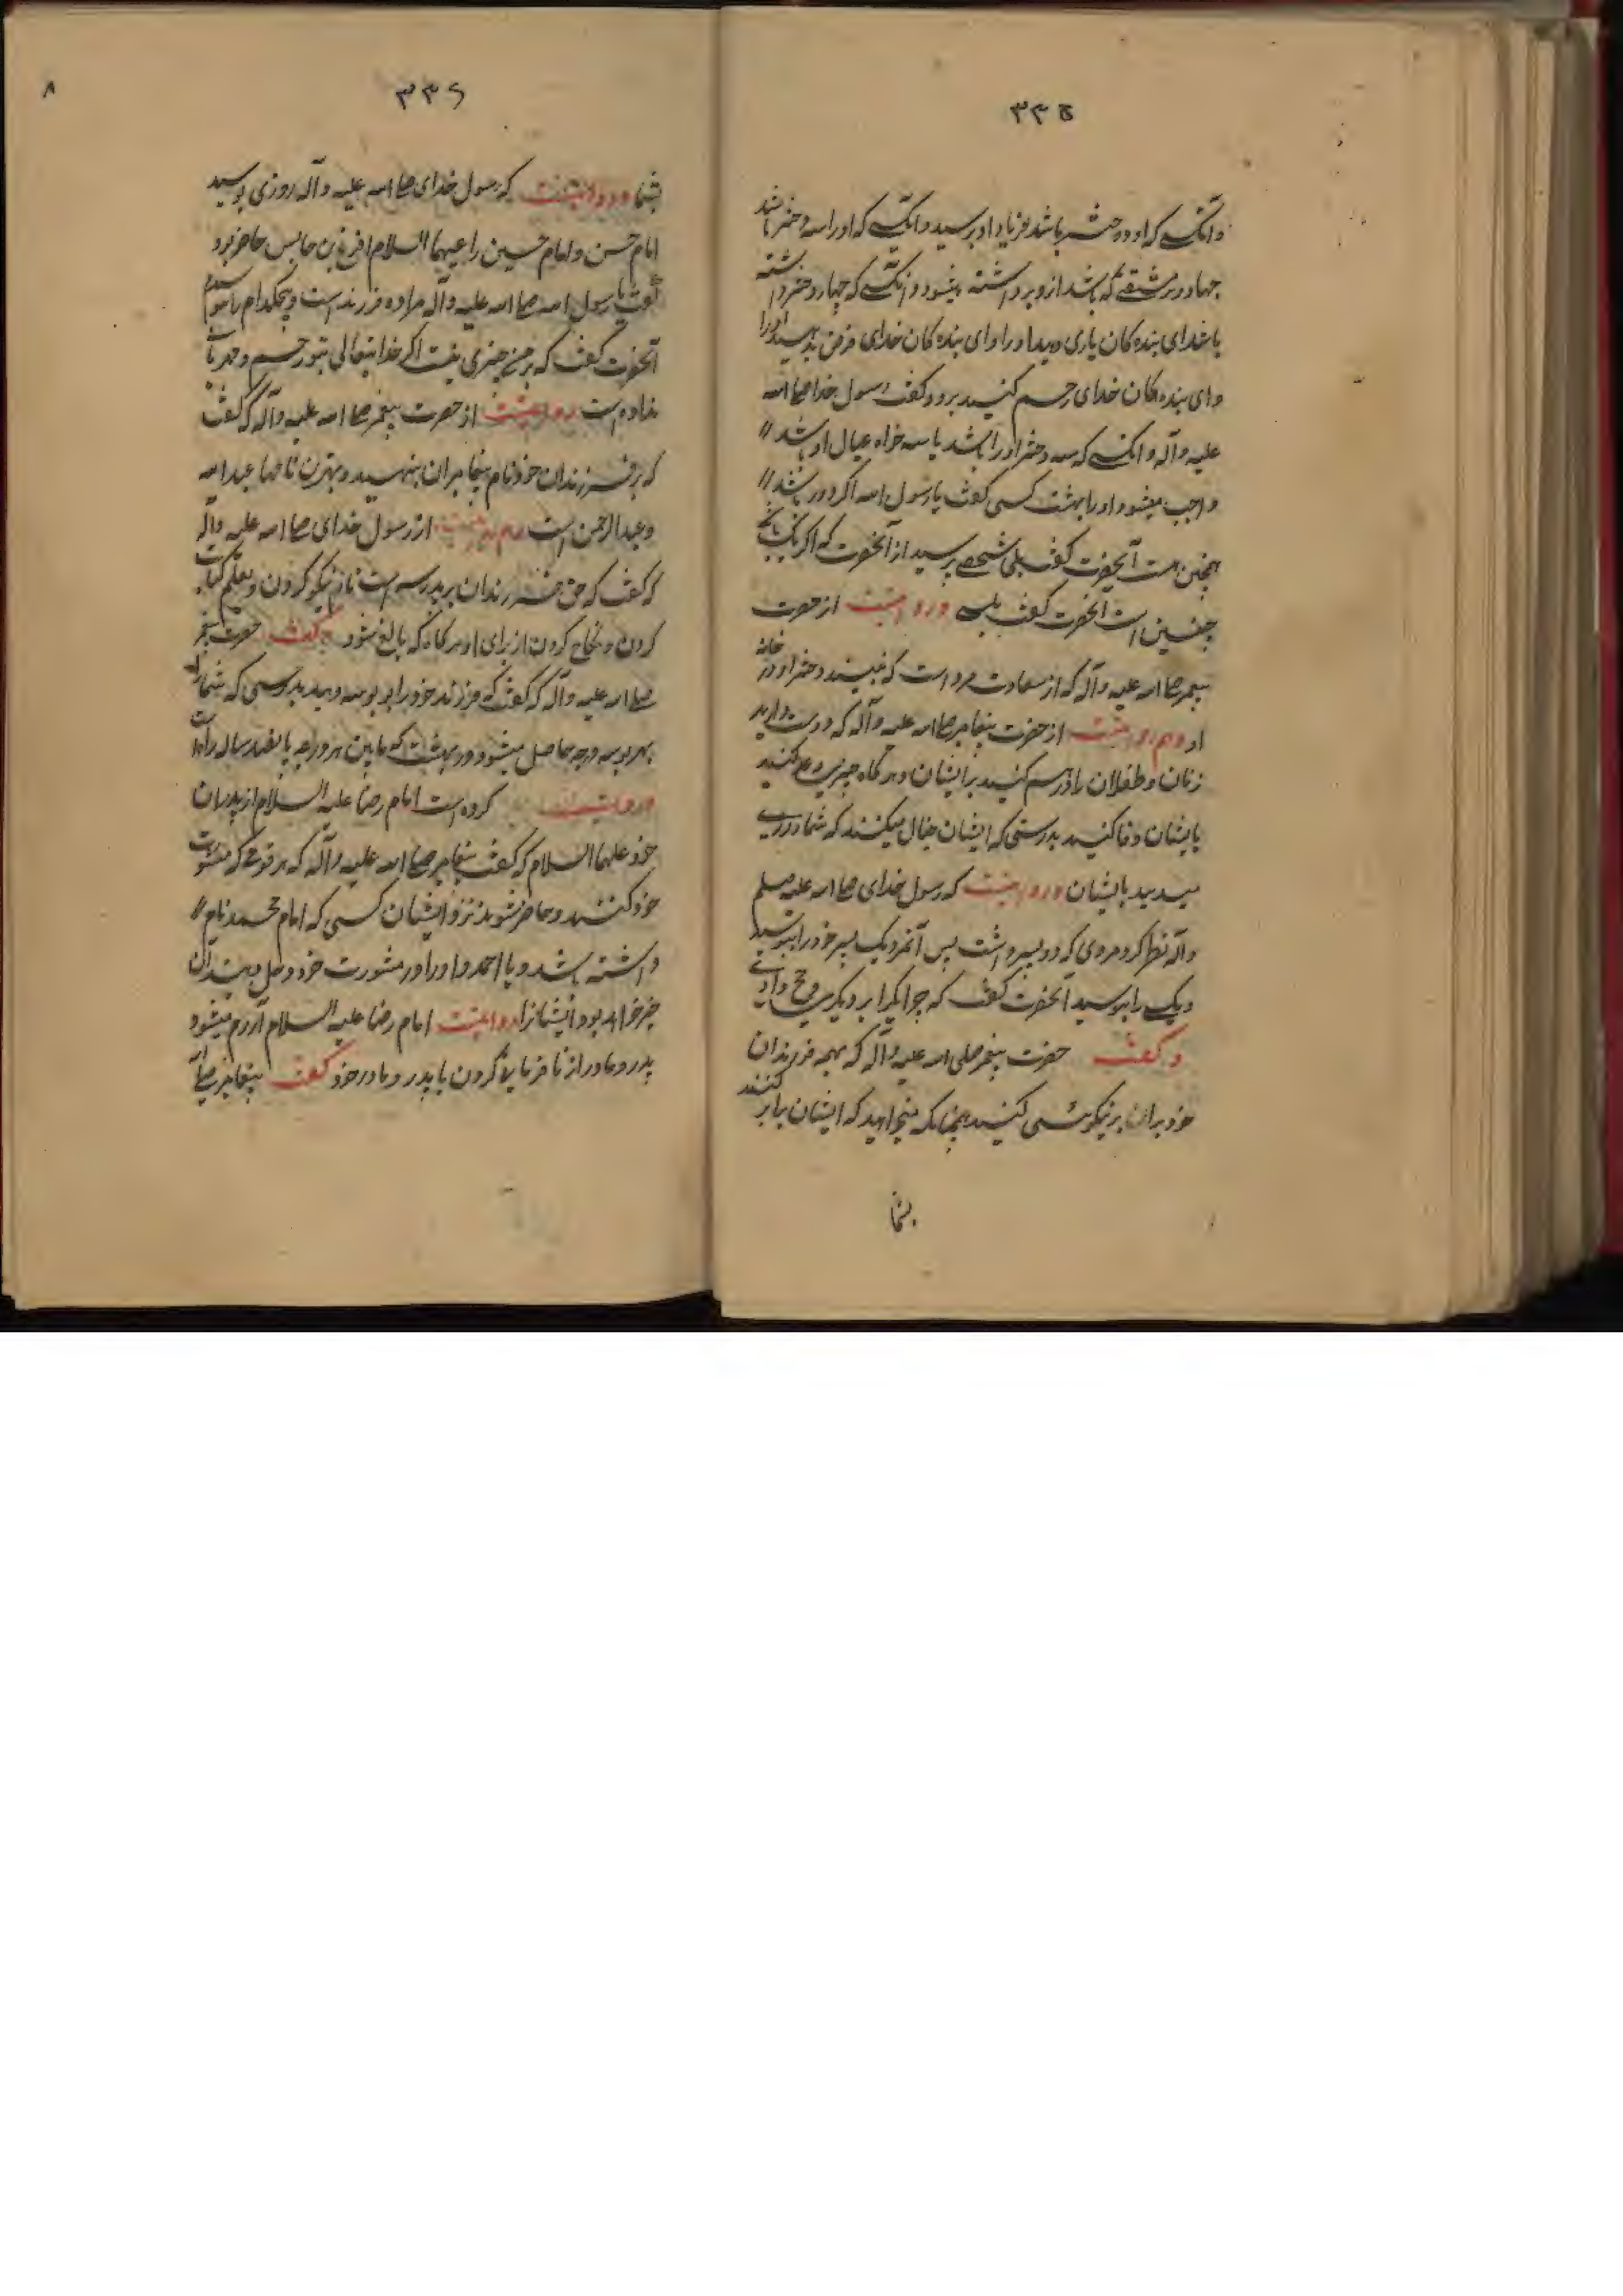 ۳۳۵
وآنکسی که او دو دختر باشد فریاد او برسید وآنکسی که او را سه دختر باشد
جهاد و هر مشقتی که باشد از و برداشته میشود وآنکسی که چهار دختر داشته
باشد ای بنده کان یاری دهید او را و ای بنده کان خدای قرض بدهید او را
و ای بنده کان خدای رحم کنید برو و کفت رسول خدا صلی الله
علیه وآله وآنکسی که سه دختر او را باشد یا سه خواهر عیال او باشد
واجب میشود او را بهشت کسی کفت یا رسول الله اکر دو باشد
همچنین است آنحضرت کفت بلی شخصی پرسید از آنحضرت که اکر یک باشد
چنین است آنحضرت کفت بلی و روایتست از حضرت
پیغمبر صلی الله علیه وآله که از سعادت مرد است که نبیند دختر او در خانه
او وهم روایتست از حضرت پیغامبر صلی الله علیه وآله که دوست دارید
زنان و طفلان را و رحم کنید بر ایشان و هر کاه چیزی وعده کنید
بایشان وفا کنید بدرستی که ایشان خیال میکنند که شما روزی
میدهید بایشان و روایتست که رسول خدای صلی الله علیه وسلم
وآله نظر کرد مردی که دو پسر داشت پس آنمرد یک پسر خود را ببوسید
و یک را نبوسید آنحضرت کفت که چرا یکی را بر دیکری ترجیح دادی
و کفت حضرت پیغمبر صلی الله علیه وآله که بهمه فرزندان
خود برابر نیکوئی کنید همچنانکه میخواهید که ایشان برابر کنند
بشما
۳۳۶
۸
بشما و روایتست که رسول خدای صلی الله علیه وآله روزی بوسید
امام حسن و امام حسین را علیهما السلام اقرع بن حابس حاضر بود
کفت یا رسول الله صلی الله علیه وآله مرا ده فرزند است و هیچکدام را نبوسیدم
آنحضرت کفت که بر من چیزی نیست اکر خدایتعالی بتو رحم و مهربانی
نداده است روایتست از حضرت پیغمبر صلی الله علیه وآله که کفت
که بر فرزندان خود نام پیغامبران بنهید و بهترین نامها عبدالله
و عبدالرحمن است وهم روایتست از رسول خدای صلی الله علیه وآله
که کفت که حق فرزندان بر پدر سه است نام نیکو کردن و تعلیم کتابت
کردن و نکاح کردن از برای او هرکاه که بالغ شود و کفت حضرت پیغمبر
صلی الله علیه وآله که کفت که فرزند خود را بوسه دهید بدرستی که شما را
بهر بوسه درجه حاصل میشود در بهشت که مابین هر درجه پانصد ساله راه است
و روایت کرده است امام رضا علیه السلام از پدران
خود علیهم السلام که کفت پیغامبر صلی الله علیه وآله که هر قومی که مشورت
خود کنند و حاضر شود نزد ایشان کسی که امام محمد نام
داشته باشد و یا احمد و او را در مشورت خود دخل دهند آن
خیر خواهد بود ایشانرا روایتست امام رضا علیه السلام آزرم میشود
پدر و مادر از نافرمانی کردن با پدر و مادر خود کفت پیغامبر صلی الله